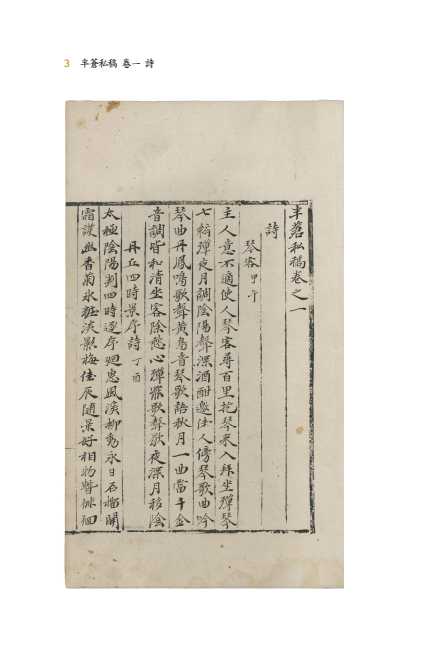 3 半蒼私稿 卷一 詩
半蒼私稿卷之一
詩
琴客 甲午
主人意不適使人琴客尋百里抱琴來入拜坐彈琴
七絃彈夜月調陰陽聲深酒酣邀佳人傍琴歌曲吟
琴曲丹鳳鳴歌聲黃鳥音琴歌語秋月一曲當千金
音調皆和清坐客除愁心彈罷歌聲歇夜深月移陰
丹丘四時景序詩 丁酉
太極陰陽判四時逐序廻惠風溪柳動永日石榴開
霜護幽香菊氷粧淡影梅佳辰隨景好相物暫徘徊